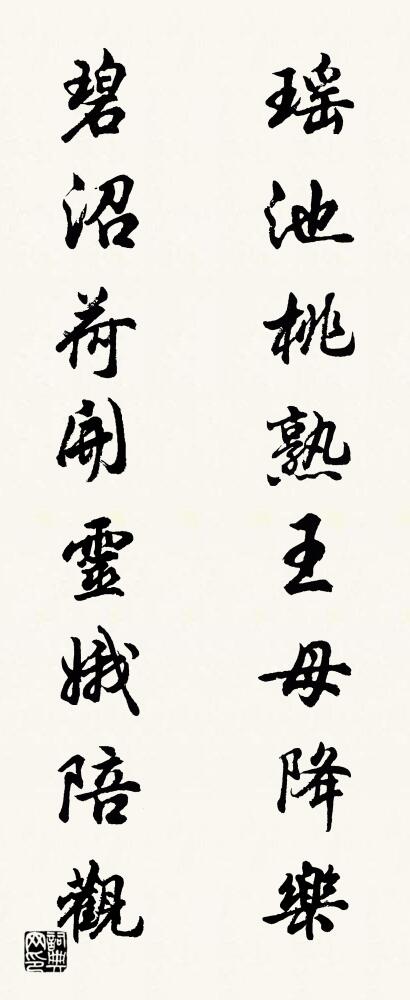 瑶池桃熟王母降樂
碧沼荷開靈娥陪觀
詞典網印